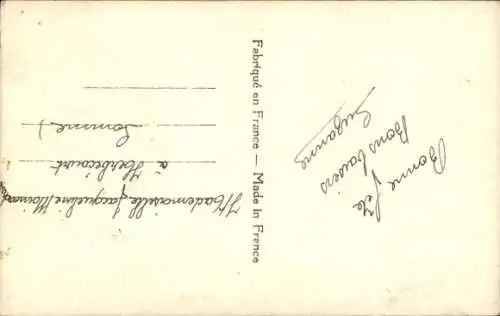 Bonne Fête
Bons baisers
Suzanne
Fabriqué en France — Made in France
Mademoiselle Jacqueline
à Herbécourt
(Somme)